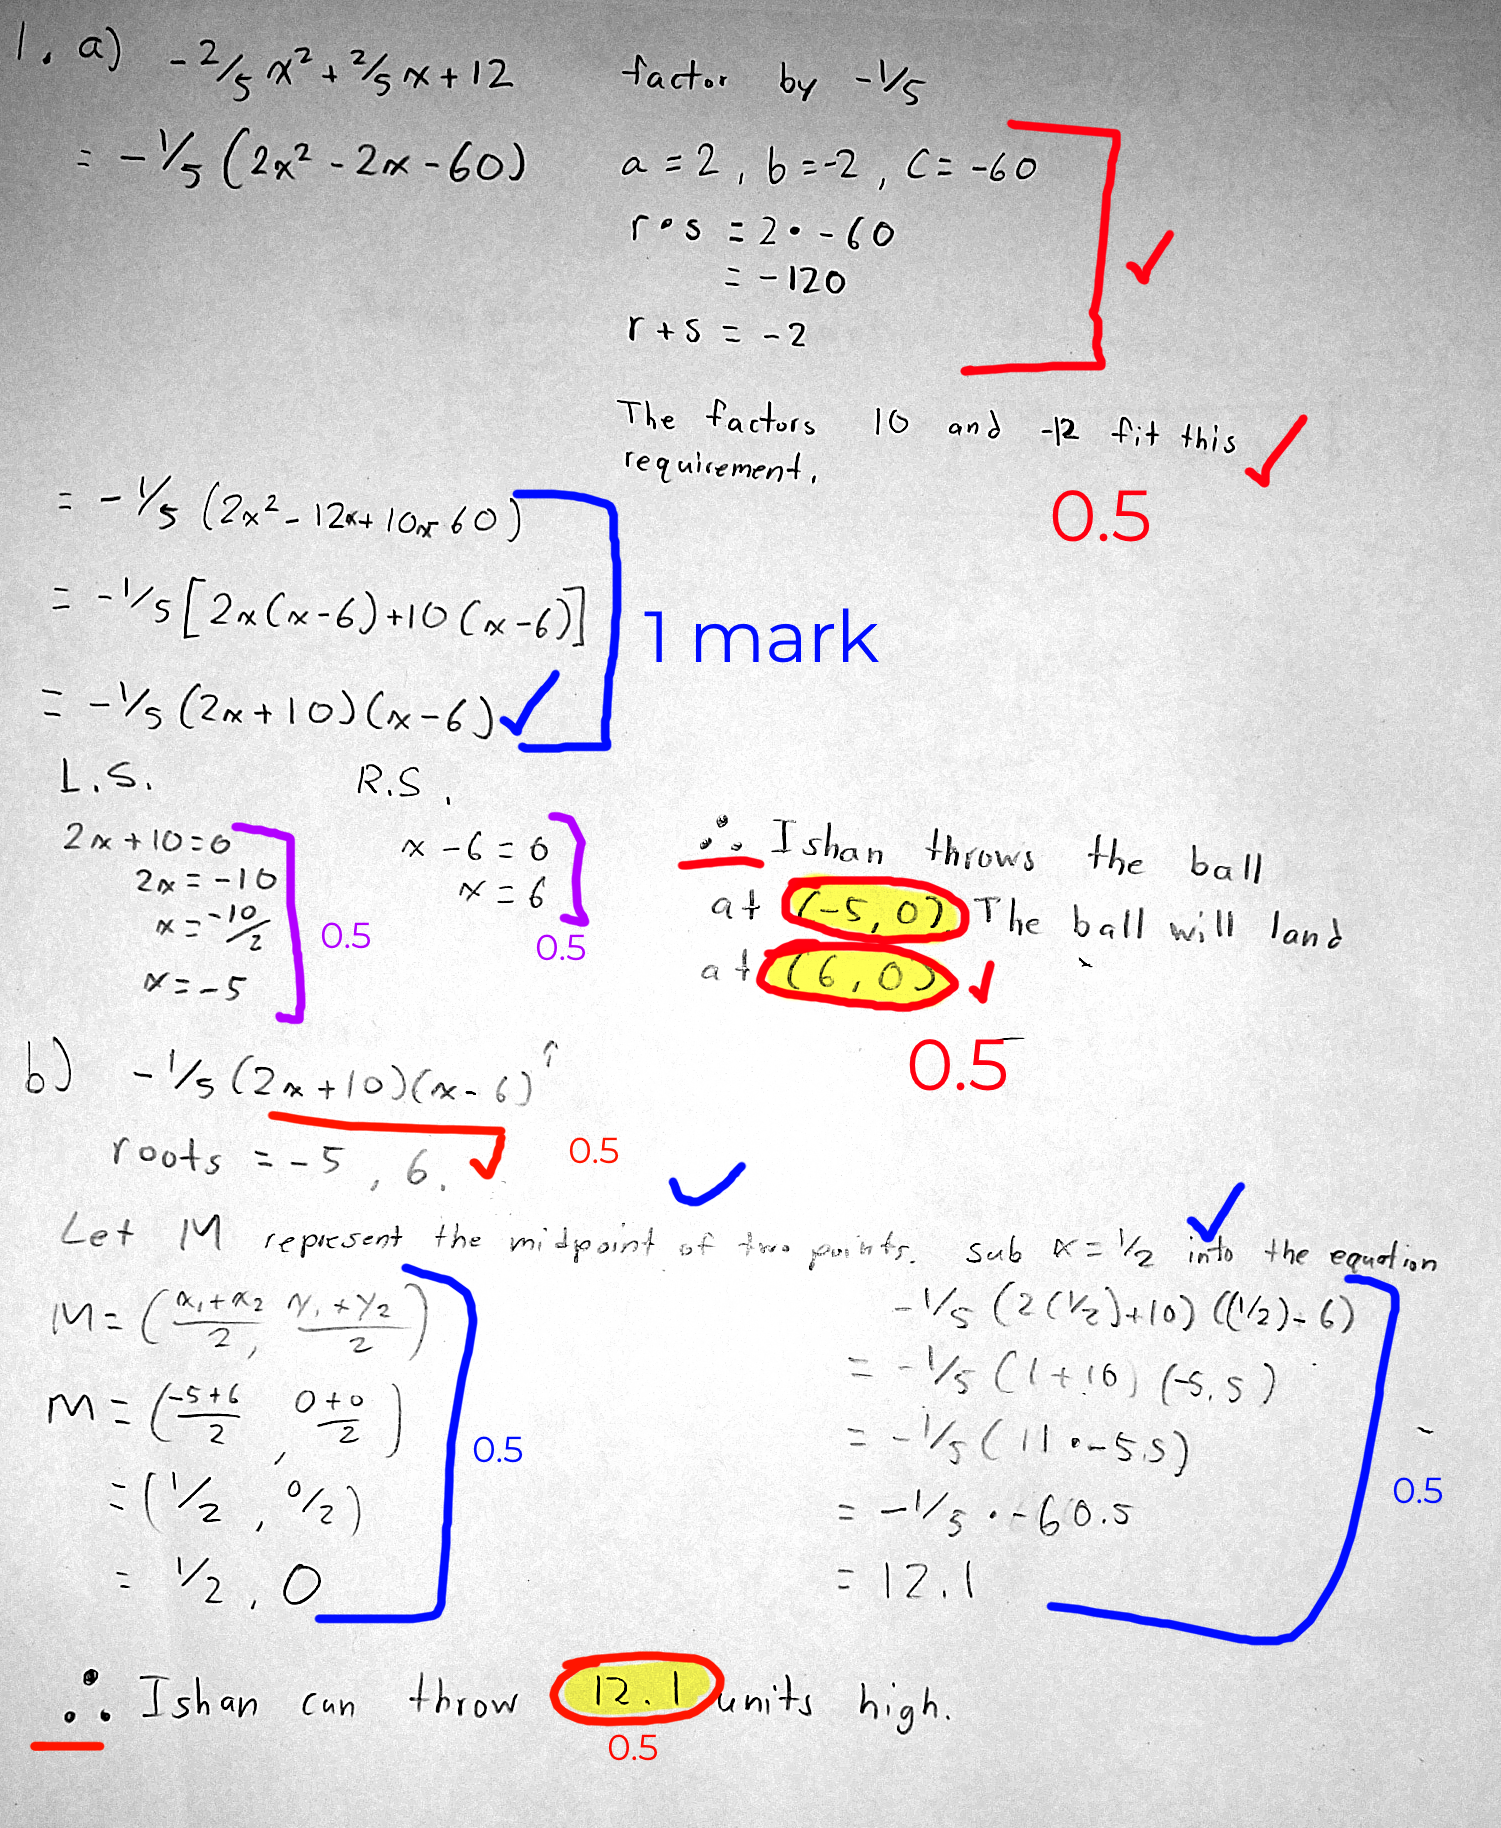 1. a) -2/5 x² + 2/5 x + 12 factor by -1/5
= -1/5 (2x² - 2x - 60) a = 2, b = -2, C = -60
r • s = 2 • -60
= -120
r + s = -2
The factors 10 and -12 fit this
requirement.
0.5
= -1/5 (2x² - 12x + 10x - 60)
= -1/5 [2x(x-6) + 10(x-6)]
1 mark
= -1/5 (2x + 10)(x - 6)
L.S. R.S.
2x + 10 = 0 x - 6 = 0
2x = -10 x = 6
x = -10/2
x = -5
0.5 0.5
∴ Ishan throws the ball
at (-5, 0). The ball will land
at (6, 0)
0.5
b) -1/5 (2x + 10)(x - 6)
roots = -5, 6.
0.5
Let M represent the midpoint of two points. sub x = 1/2 into the equation
M = (x₁ + x₂ / 2, y₁ + y₂ / 2)
M = (-5 + 6 / 2, 0 + 0 / 2)
= (1/2, 0/2)
= 1/2, 0
0.5
-1/5 (2(1/2) + 10) ((1/2) - 6)
= -1/5 (1 + 10) (-5.5)
= -1/5 (11 • -5.5)
= -1/5 • -60.5
= 12.1
0.5
∴ Ishan can throw 12.1 units high.
0.5